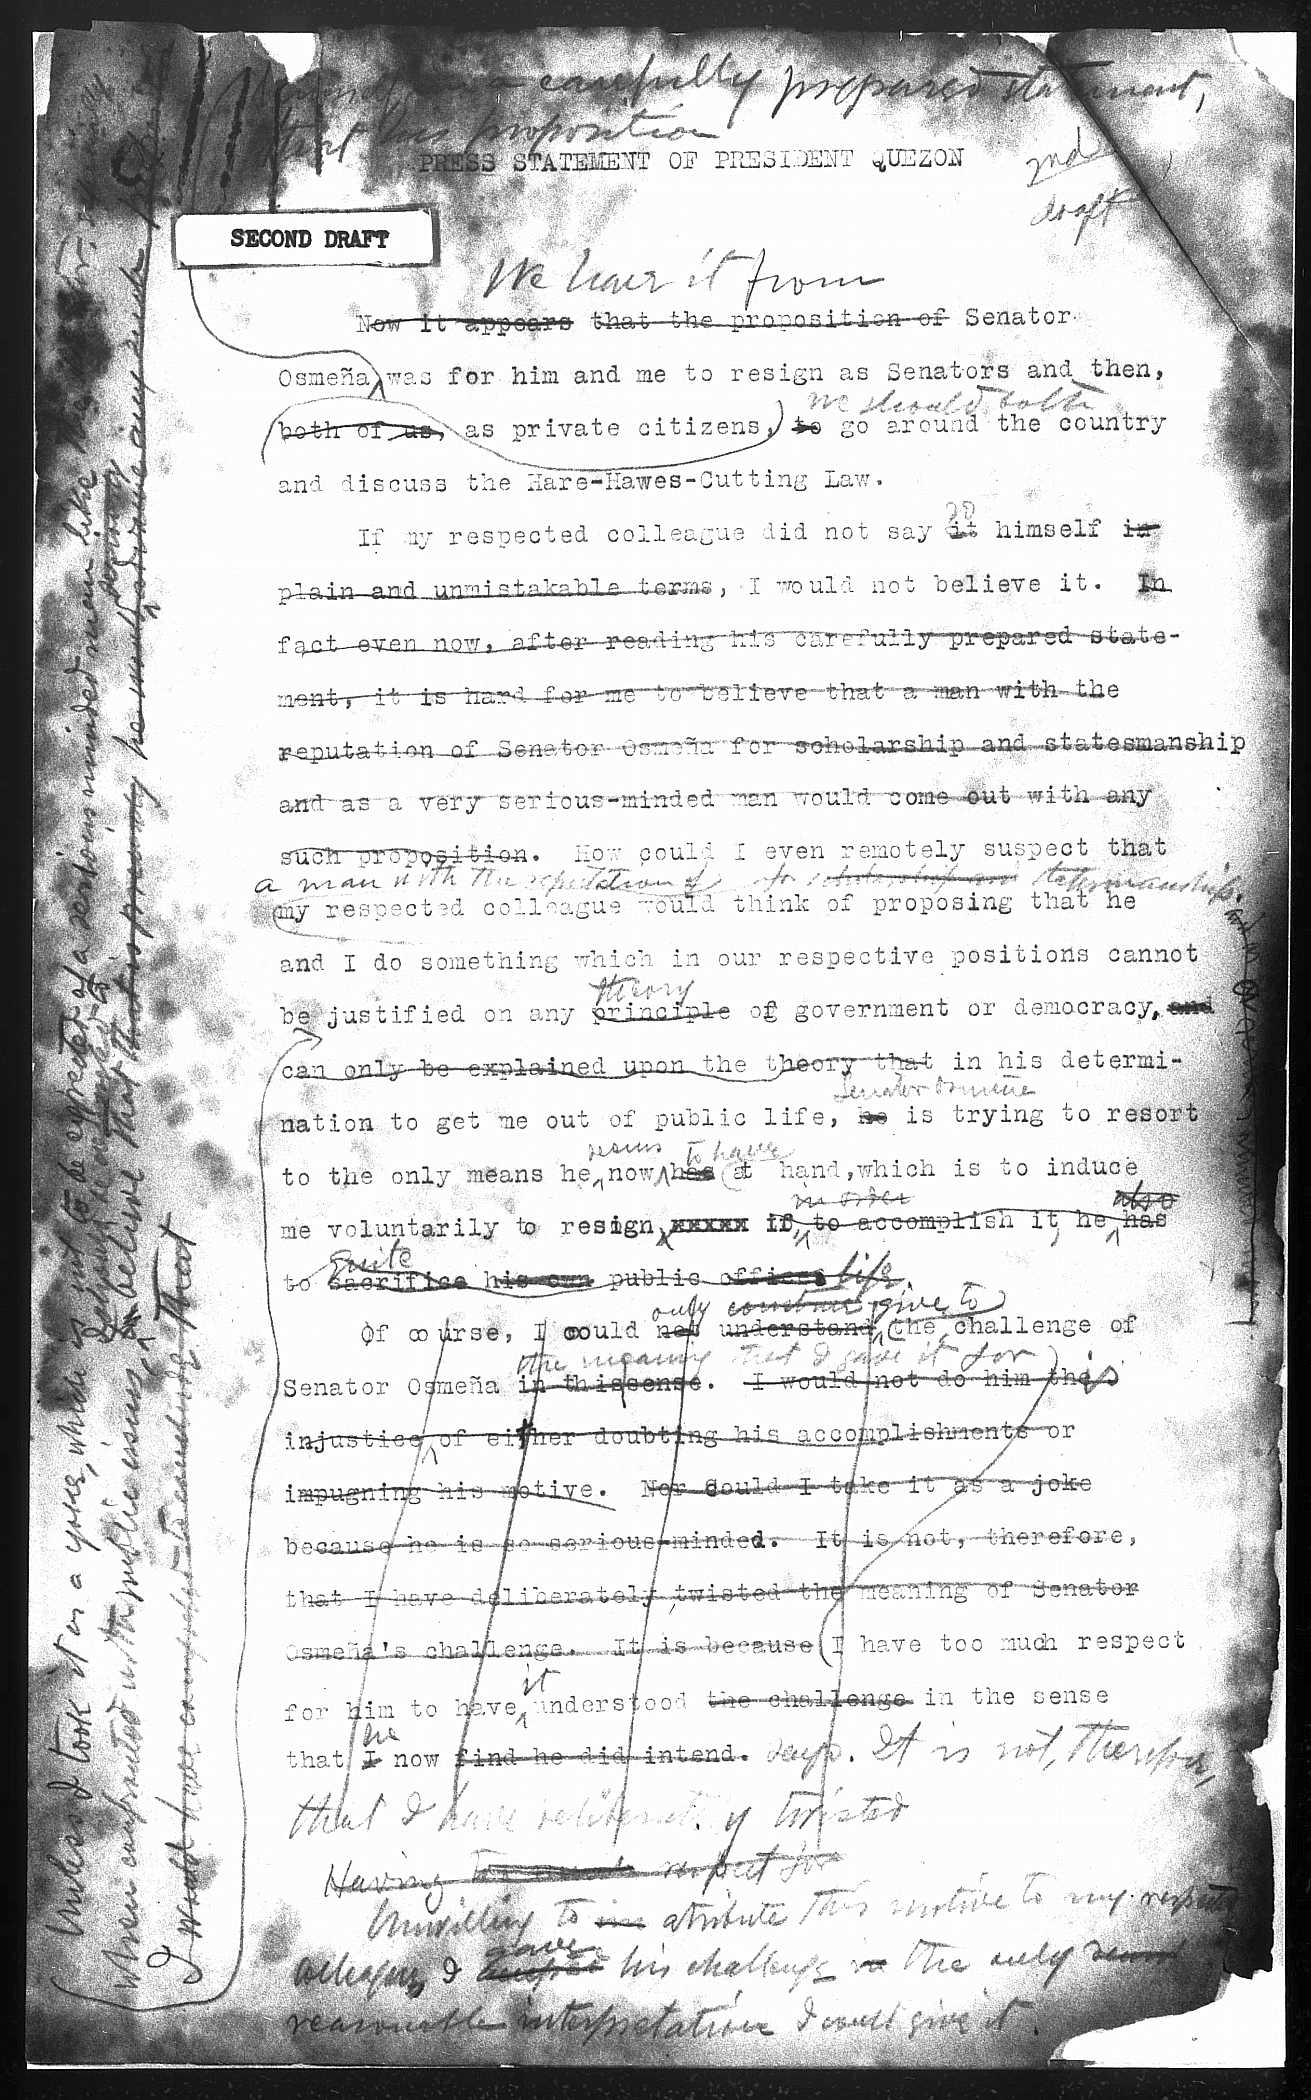 a carefully prepared statement,
that his proposition
PRESS STATEMENT OF PRESIDENT QUEZON
2nd
draft
SECOND DRAFT
We have it from
Now it appears that the proposition of Senator
Osmeña was for him and me to resign as Senators and then,
we should both
both of us, as private citizens, to go around the country
and discuss the Hare-Hawes-Cutting Law.
so
If my respected colleague did not say it himself in
plain and unmistakable terms, I would not believe it. In
fact even now, after reading his carefully prepared state-
ment, it is hard for me to believe that a man with the
reputation of Senator Osmeña for scholarship and statesmanship
and as a very serious-minded man would come out with any
such proposition. How could I even remotely suspect that
a man with the reputation of for scholarship and statesmanship
my respected colleague would think of proposing that he
and I do something which in our respective positions cannot
theory
be justified on any principle of government or democracy, and
can only be explained upon the theory that in his determi-
Senator Osmeña
nation to get me out of public life, he is trying to resort
seems to have
to the only means he now has at hand, which is to induce
in order also
me voluntarily to resign, xxxxx if, to accomplish it, he has
quite
to sacrifice his own public offices life.
only construe give to
Of course, I could not understand the challenge of
the meaning that I gave it for
Senator Osmeña in this sense. I would not do him this
injustice of either doubting his accomplishments or
impugning his motive. Nor Could I take it as a joke
because he is so serious-minded. It is not, therefore,
that I have deliberately twisted the meaning of Senator
Osmeña's challenge. It is because I have too much respect
it
for him to have understood the challenge in the sense
he
that I now find he did intend. says. It is not, therefore,
that I have deliberately twisted
Having too much respect for
Unwilling to attribute this motive to my respected
gave
colleague, I his challenge in the only
reasonable interpretation I could give it.
Unless I took it as a joke, which is not to be expected of a serious minded man like the
when confronted with public issues
believe that that is precisely he would advance any such
I would have completed to consider that